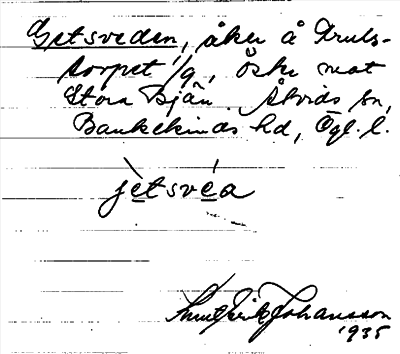 Getsveden, åker å Truls-
torpet 1/9, Öster mot
Stora Bjän. Åtvids sn,
Bankekinds hd, Ögl. l.
jètsvéa
Knut Erik Johansson
1935